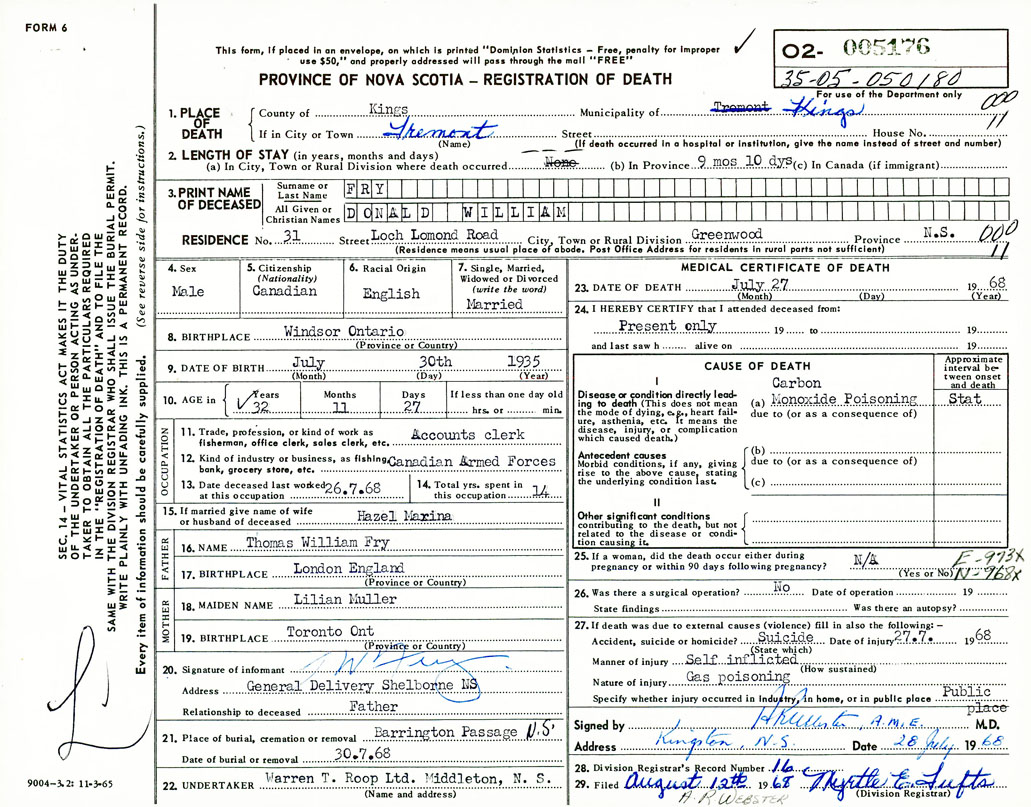 FORM 6
This form, if placed in an envelope, on which is printed "Dominion Statistics – Free, penalty for improper
use $50," and properly addressed will pass through the mail "FREE"
PROVINCE OF NOVA SCOTIA – REGISTRATION OF DEATH
02- 005176
35-05-050180
For use of the Department only
000
11
1. PLACE OF DEATH
County of Kings Municipality of Tremont Kings
If in City or Town Tremont Street House No.
(Name) (If death occurred in a hospital or institution, give the name instead of street and number)
2. LENGTH OF STAY (in years, months and days)
(a) In City, Town or Rural Division where death occurred None (b) In Province 9 mos 10 dys (c) In Canada (if immigrant)
3. PRINT NAME OF DECEASED
Surname or Last Name FRY
All Given or Christian Names DONALD WILLIAM
RESIDENCE No. 31 Street Loch Lomond Road City, Town or Rural Division Greenwood Province N.S.
(Residence means usual place of abode. Post Office Address for residents in rural parts not sufficient)
000
11
4. Sex
Male
5. Citizenship
(Nationality)
Canadian
6. Racial Origin
English
7. Single, Married,
Widowed or Divorced
(write the word)
Married
8. BIRTHPLACE Windsor Ontario
(Province or Country)
9. DATE OF BIRTH July 30th 1935
(Month) (Day) (Year)
10. AGE in Years Months Days If less than one day old
32 11 27 hrs. or min.
OCCUPATION
11. Trade, profession, or kind of work as
fisherman, office clerk, sales clerk, etc. Accounts clerk
12. Kind of industry or business, as fishing,
bank, grocery store, etc. Canadian Armed Forces
13. Date deceased last worked
at this occupation 26.7.68
14. Total yrs. spent in
this occupation 14
15. If married give name of wife
or husband of deceased Hazel Marina
FATHER
16. NAME Thomas William Fry
17. BIRTHPLACE London England
(Province or Country)
MOTHER
18. MAIDEN NAME Lilian Muller
19. BIRTHPLACE Toronto Ont
(Province or Country)
20. Signature of informant T W Fry
Address General Delivery Shelborne NS
Relationship to deceased Father
21. Place of burial, cremation or removal Barrington Passage N.S.
Date of burial or removal 30.7.68
22. UNDERTAKER Warren T. Roop Ltd. Middleton, N. S.
(Name and address)
MEDICAL CERTIFICATE OF DEATH
23. DATE OF DEATH July 27 19 68
(Month) (Day) (Year)
24. I HEREBY CERTIFY that I attended deceased from:
Present only 19 to 19
and last saw h alive on 19
CAUSE OF DEATH
Approximate
interval be-
tween onset
and death
I
Disease or condition directly lead-
ing to death (This does not mean
the mode of dying, e.g., heart fail-
ure, asthenia, etc. It means the
disease, injury, or complication
which caused death.)
Carbon
(a) Monoxide Poisoning Stat
due to (or as a consequence of)
Antecedent causes
Morbid conditions, if any, giving
rise to the above cause, stating
the underlying condition last.
(b)
due to (or as a consequence of)
(c)
II
Other significant conditions
contributing to the death, but not
related to the disease or condi-
tion causing it.
25. If a woman, did the death occur either during
pregnancy or within 90 days following pregnancy? N/A
(Yes or No)
E-973X
N-968X
26. Was there a surgical operation? No Date of operation 19
State findings Was there an autopsy?
27. If death was due to external causes (violence) fill in also the following: –
Accident, suicide or homicide? Suicide Date of injury 27.7. 19 68
(State which)
Manner of injury Self inflicted
(How sustained)
Nature of injury Gas poisoning
Specify whether injury occurred in Industry, in home, or in public place Public
place
Signed by A R Webster, A.M.E. M.D.
Address Kingston, N.S. Date 28 July 19 68
28. Division Registrar's Record Number 16
29. Filed August 12th 19 68 Myrtle E. Tufts
(Division Registrar)
A.R WEBSTER
SEC. 14 – VITAL STATISTICS ACT MAKES IT THE DUTY
OF THE UNDERTAKER OR PERSON ACTING AS UNDER-
TAKER TO OBTAIN ALL THE PARTICULARS REQUIRED
IN THE "REGISTRATION OF DEATH" AND TO FILE THE
SAME WITH THE DIVISION REGISTRAR WHO SHALL ISSUE THE BURIAL PERMIT.
WRITE PLAINLY WITH UNFADING INK. THIS IS A PERMANENT RECORD.
Every item of information should be carefully supplied. (See reverse side for instructions.)
9004-3.2: 11-3-65